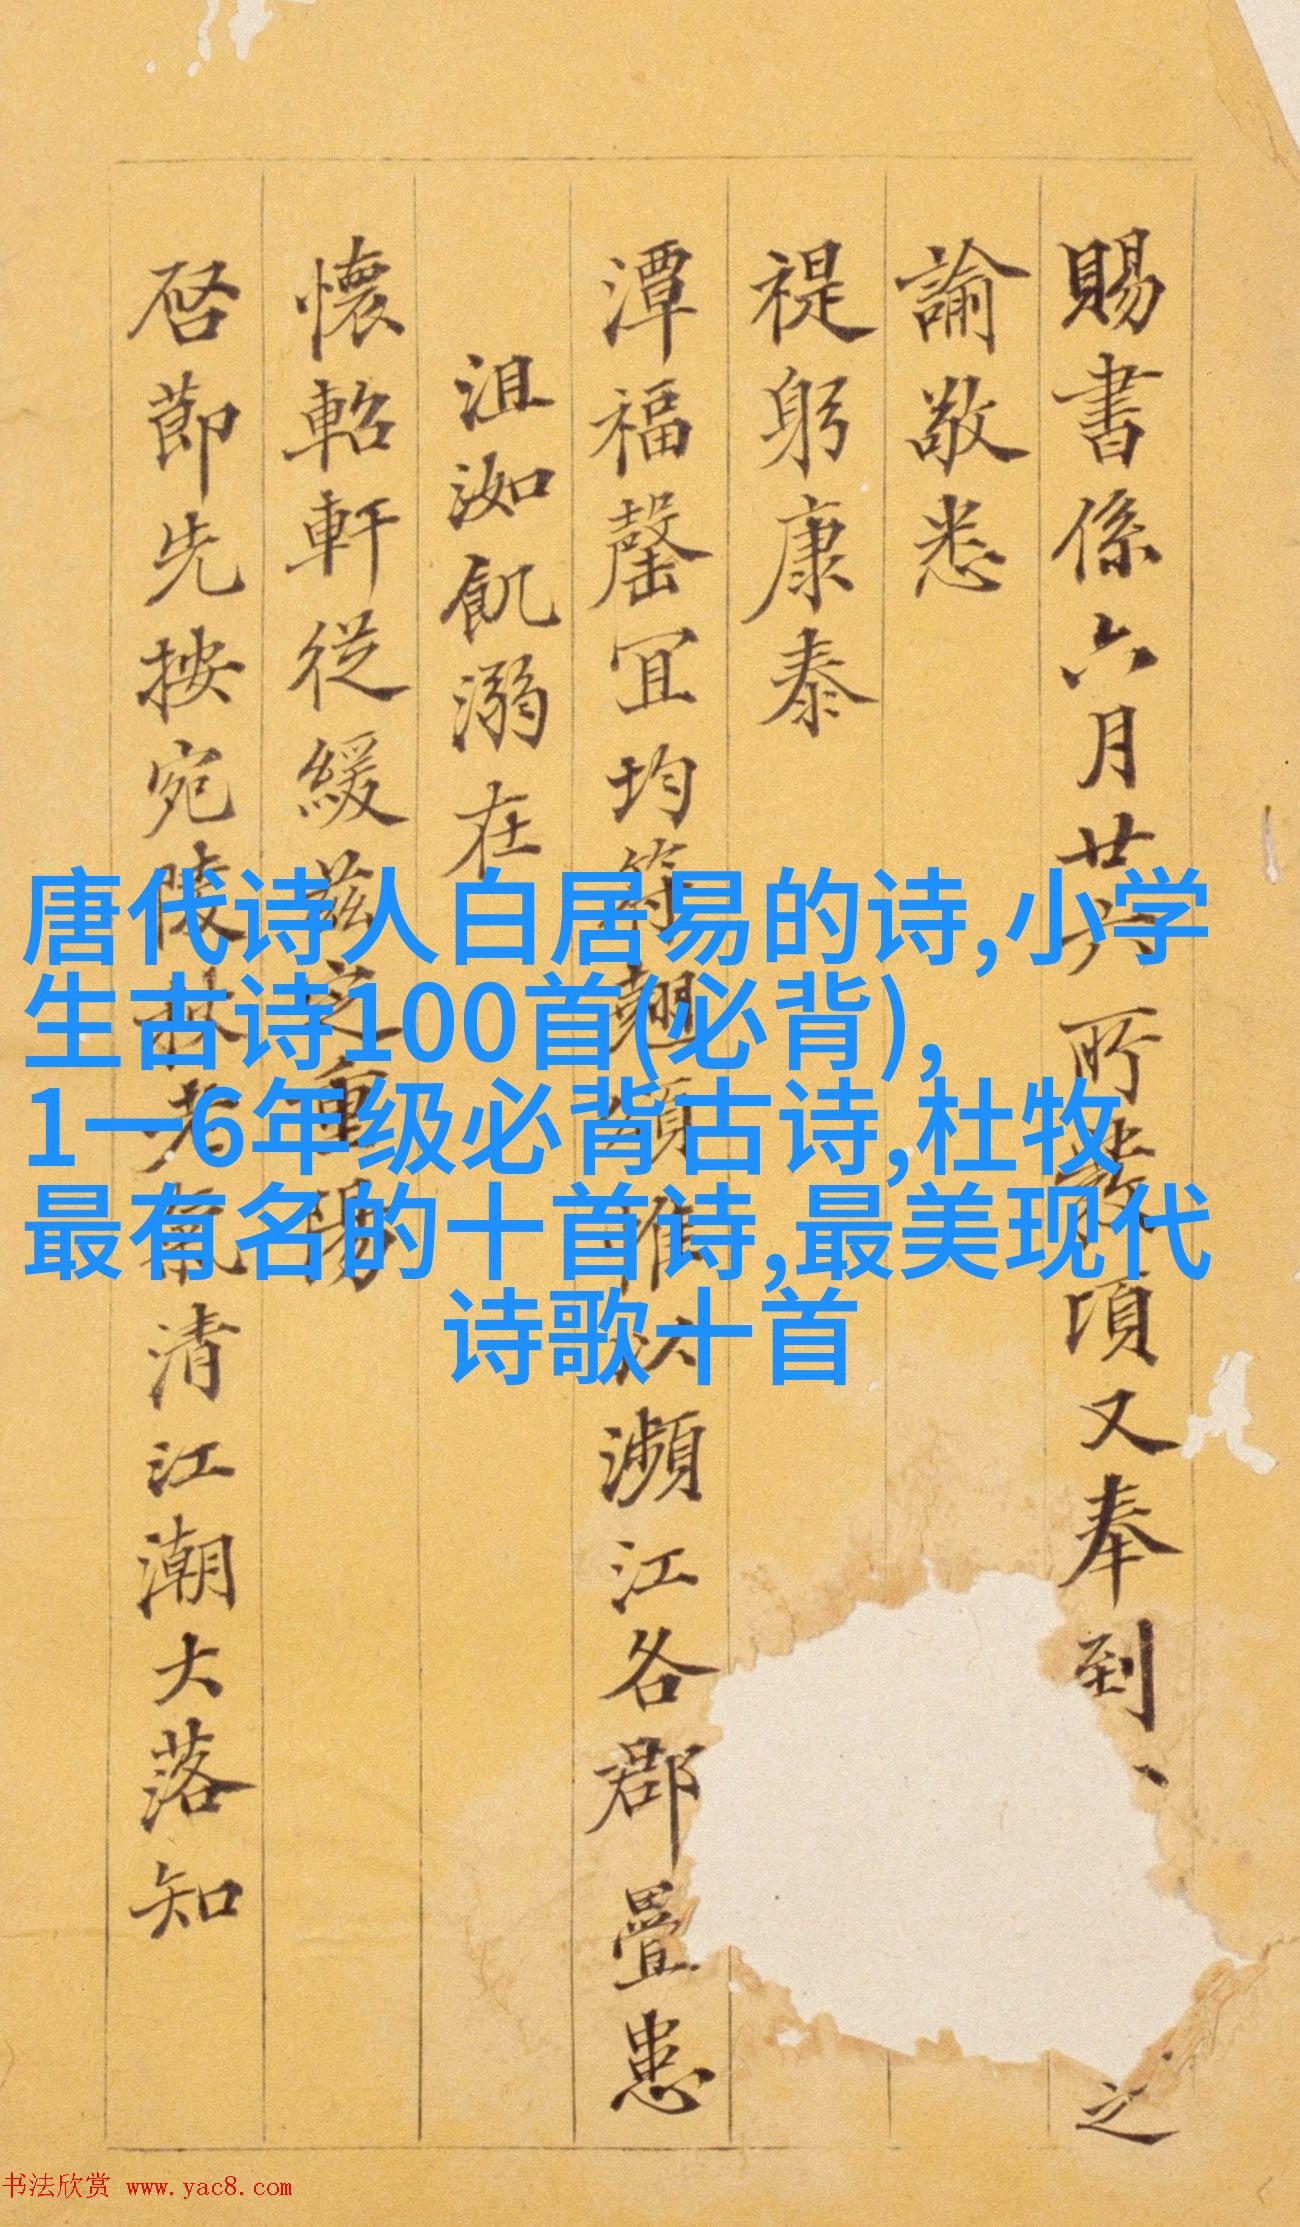 賜書係六月廿六所裝項又奉到
之
諭敬悉
禔躬康泰
潭福罄宜均符翹頌惟以瀕江各郡疊患
沮洳飢溺在
懷軺軒從緩茲之重湯
啓節先按宛陵林老氣清江潮大落知
唐代诗人白居易的诗,小学
生古诗100首(必背),
1一6年级必背古诗,杜牧
最有名的十首诗,最美现代
诗歌十首
书法欣赏 www.yac8.com